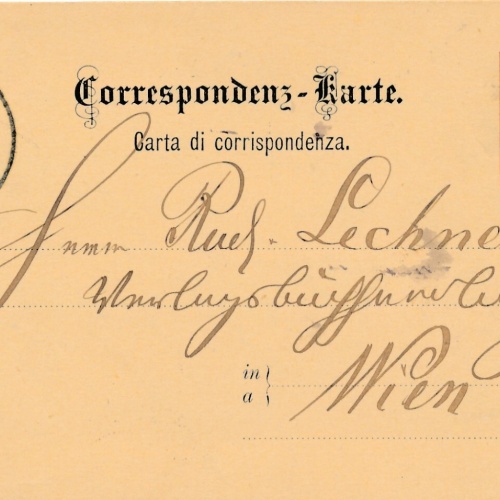 Correspondenz-Karte.
Carta di corrispondenza.
Herrn Rud. Lechne
Verlagsbuchhandlu
in
a
Wien